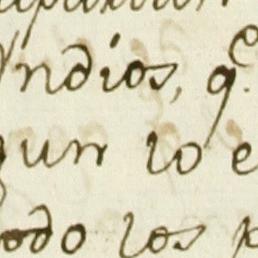 Yndios, q.e
gun lo e
odo los p